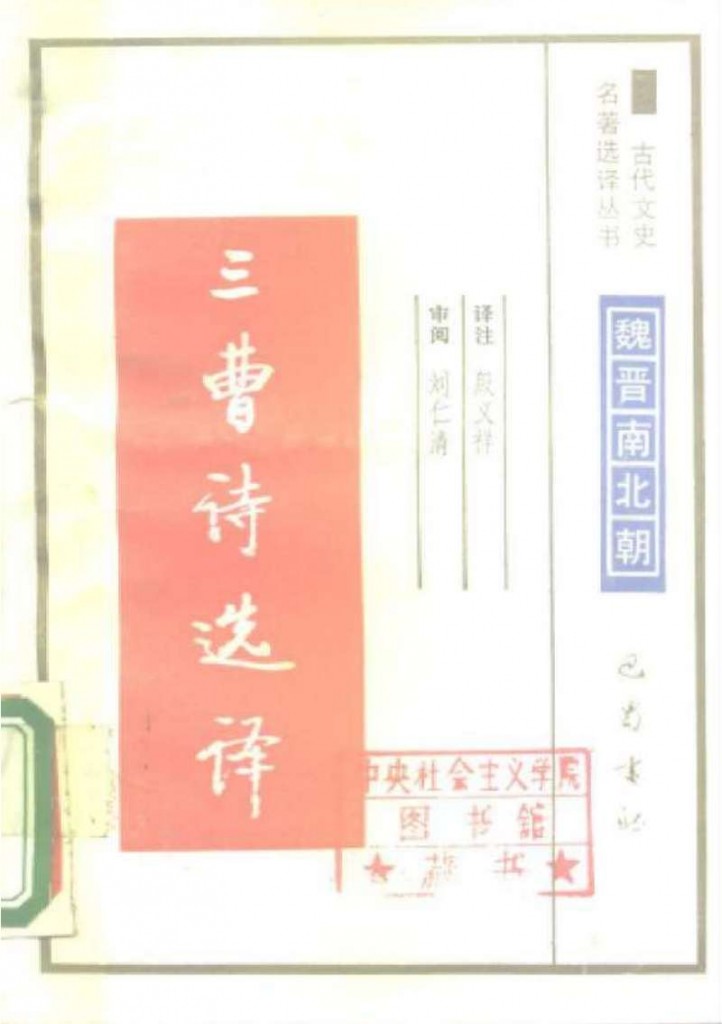 古代文史
名著选译丛书
魏晋南北朝
巴蜀书社
译注 殷义祥
审阅 刘仁清
三曹诗选译
中央社会主义学院
图书馆
★藏书★